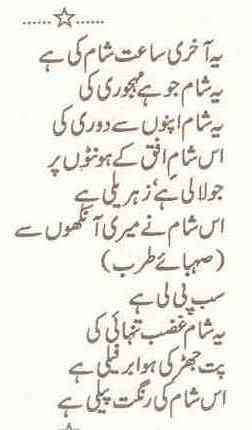 یہ آخری ساعت شام کی ہے
یہ شام جو ہے مہجوری کی
یہ شام اپنوں سے دوری کی
اس شامِ افق کے ہونٹوں پر
جو لالی ہے، زہریلی ہے
اس شام نے میری آنکھوں سے
(صہبائے طرب)
سب پی لی ہے
یہ شام غضب تنہائی کی
پت جھڑ کی ہوا برفیلی ہے
اس شام کی رنگت پیلی ہے